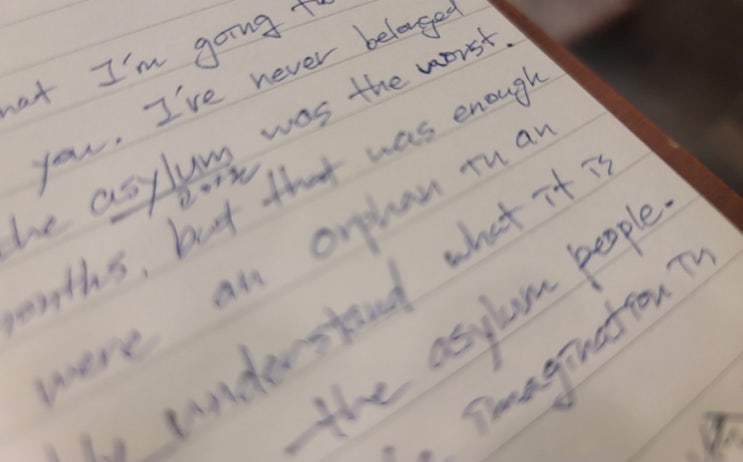 I'm going
you. I've never belonged
the asylum was the worst.
months, but that was enough
were an orphan in an
understand what it is
the asylum people.
imagination in